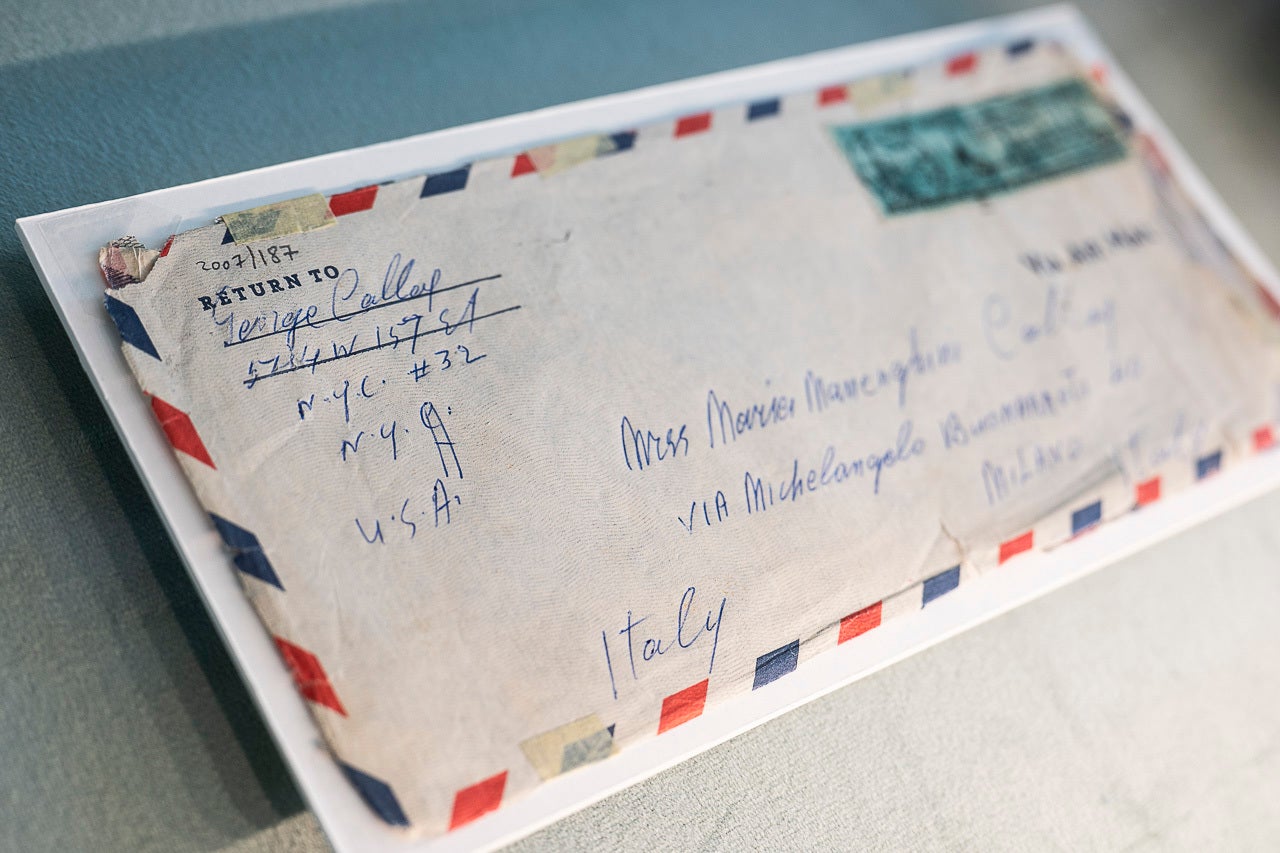 2007/187
RETURN TO
George Callas
W 157 St
N.Y.C. #32
N.Y.
U.S.A.
VIA AIR MAIL
Mrss Maria Meneghini Callas
VIA Michelangelo Buonarroti
MiLANO Italy
Italy